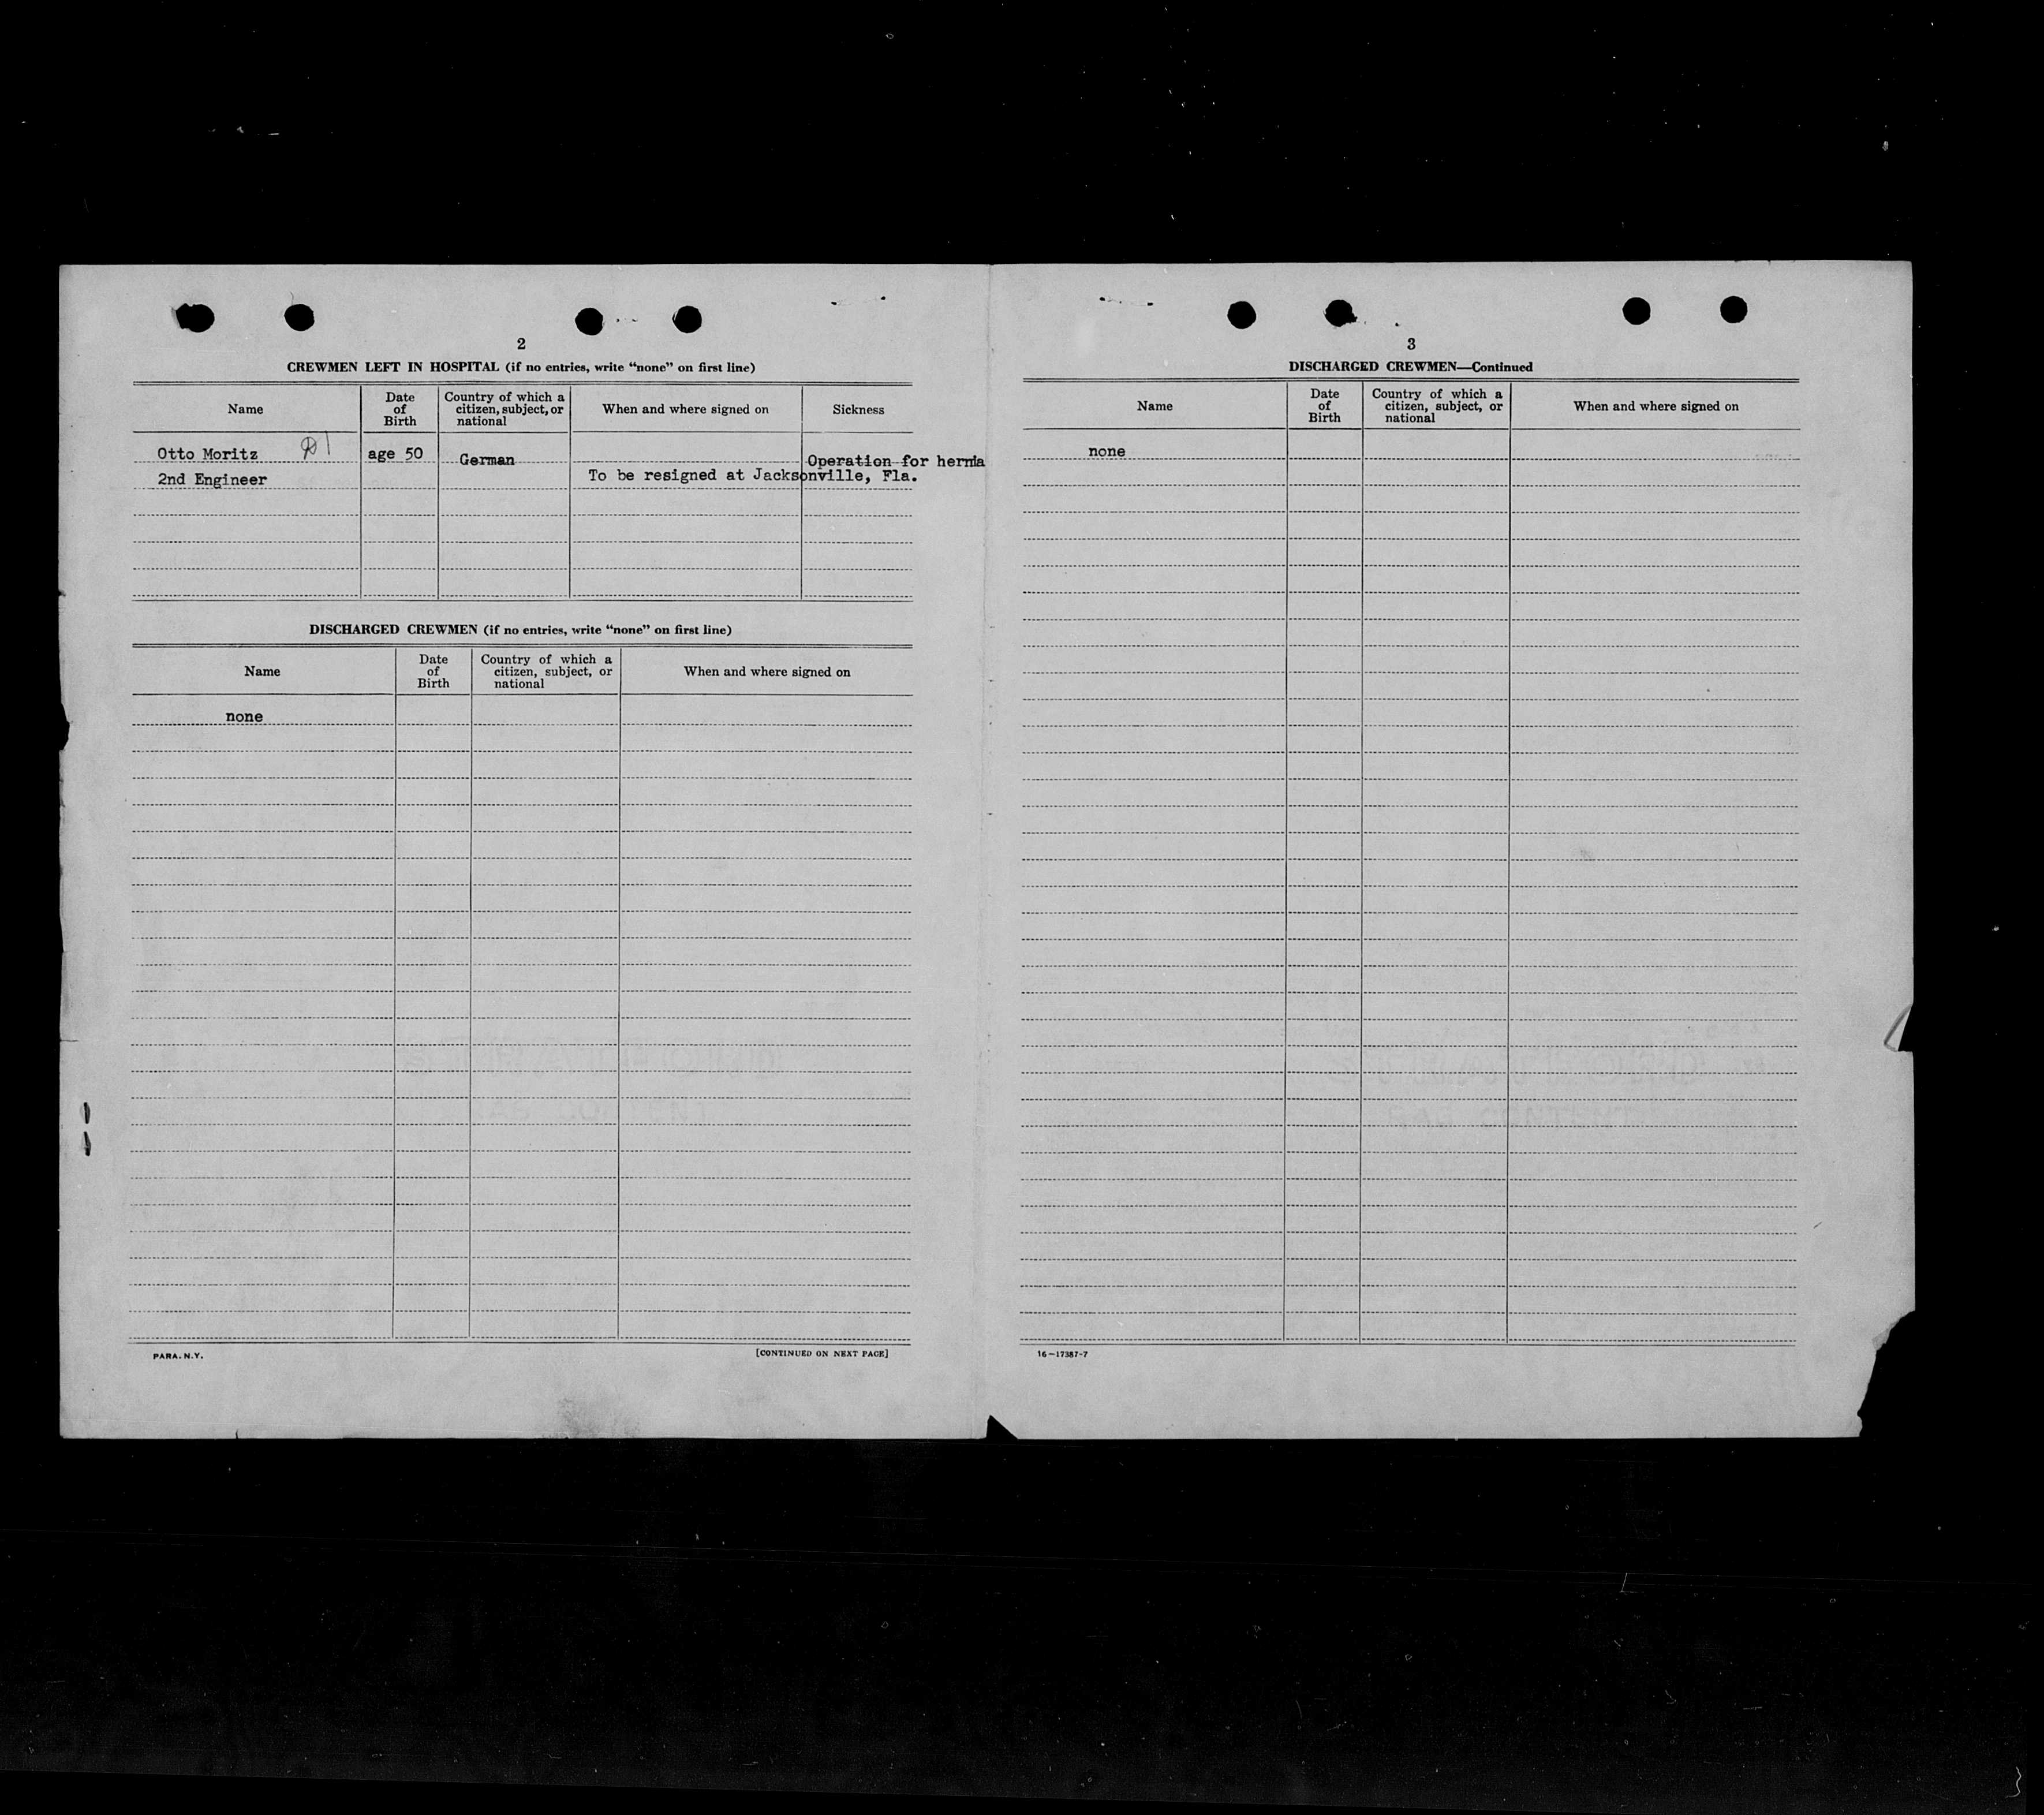 2
CREWMEN LEFT IN HOSPITAL (if no entries, write “none” on first line)
Name
Date of Birth
Country of which a citizen, subject, or national
When and where signed on
Sickness
Otto Moritz
age 50
German
Operation for hernia
2nd Engineer
To be resigned at Jacksonville, Fla.
DISCHARGED CREWMEN (if no entries, write “none” on first line)
Name
Date of Birth
Country of which a citizen, subject, or national
When and where signed on
none
PARA. N.Y.
[CONTINUED ON NEXT PAGE]
3
DISCHARGED CREWMEN—Continued
Name
Date of Birth
Country of which a citizen, subject, or national
When and where signed on
none
16—17387-7